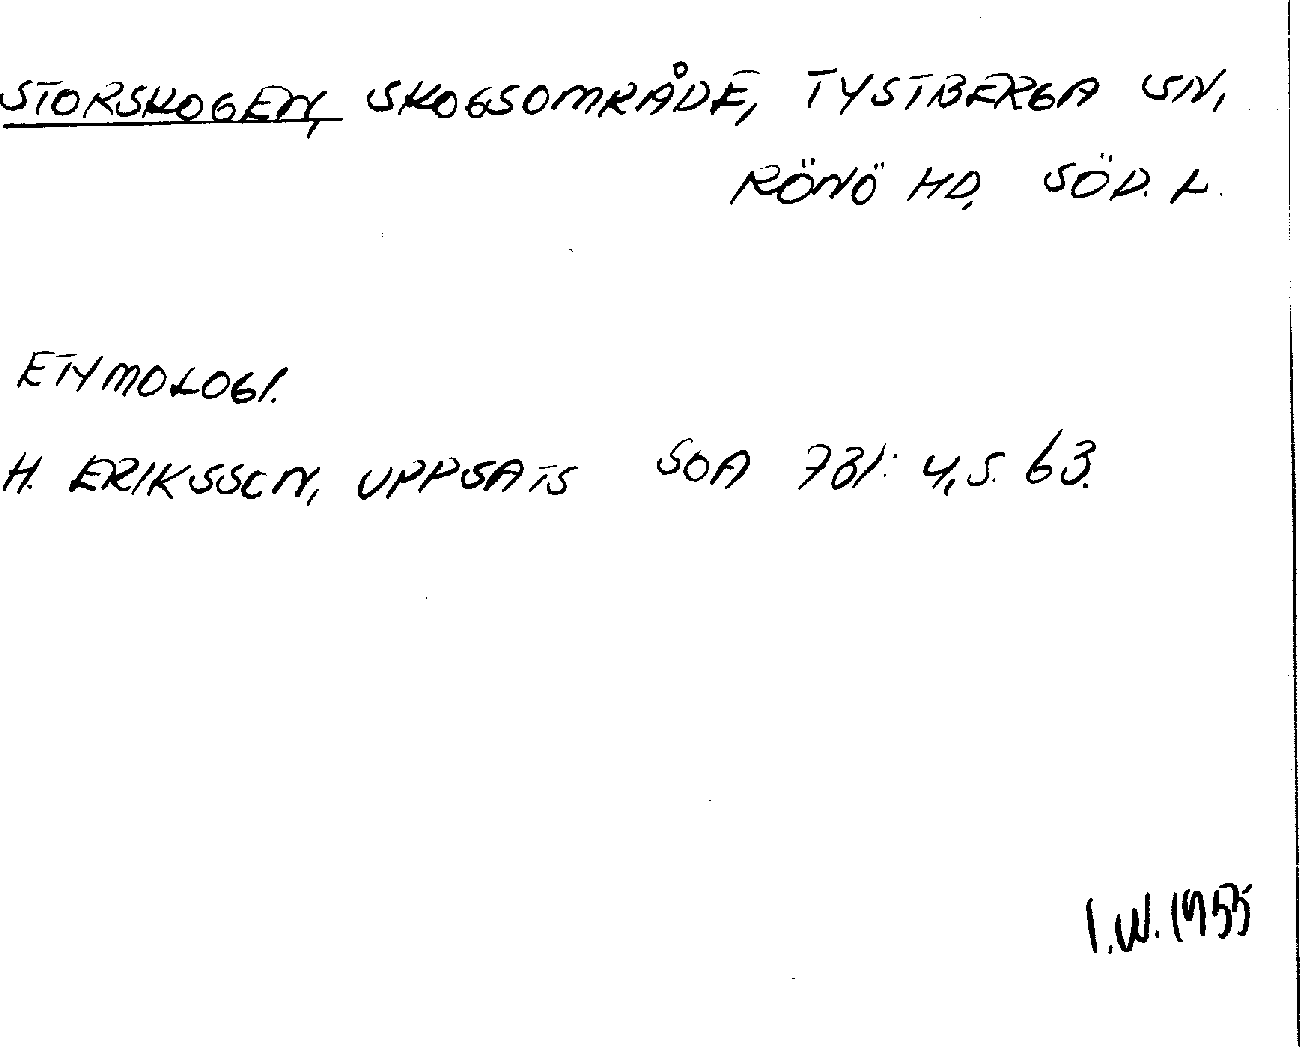 STORSKOGEN, SKOGSOMRÅDE, TYSTBERGA SN,
RÖNÖ HD, SÖD. L.
ETYMOLOGI.
H. ERIKSSON, UPPSATS SOA 781: 4, S. 63.
I.W. 1955